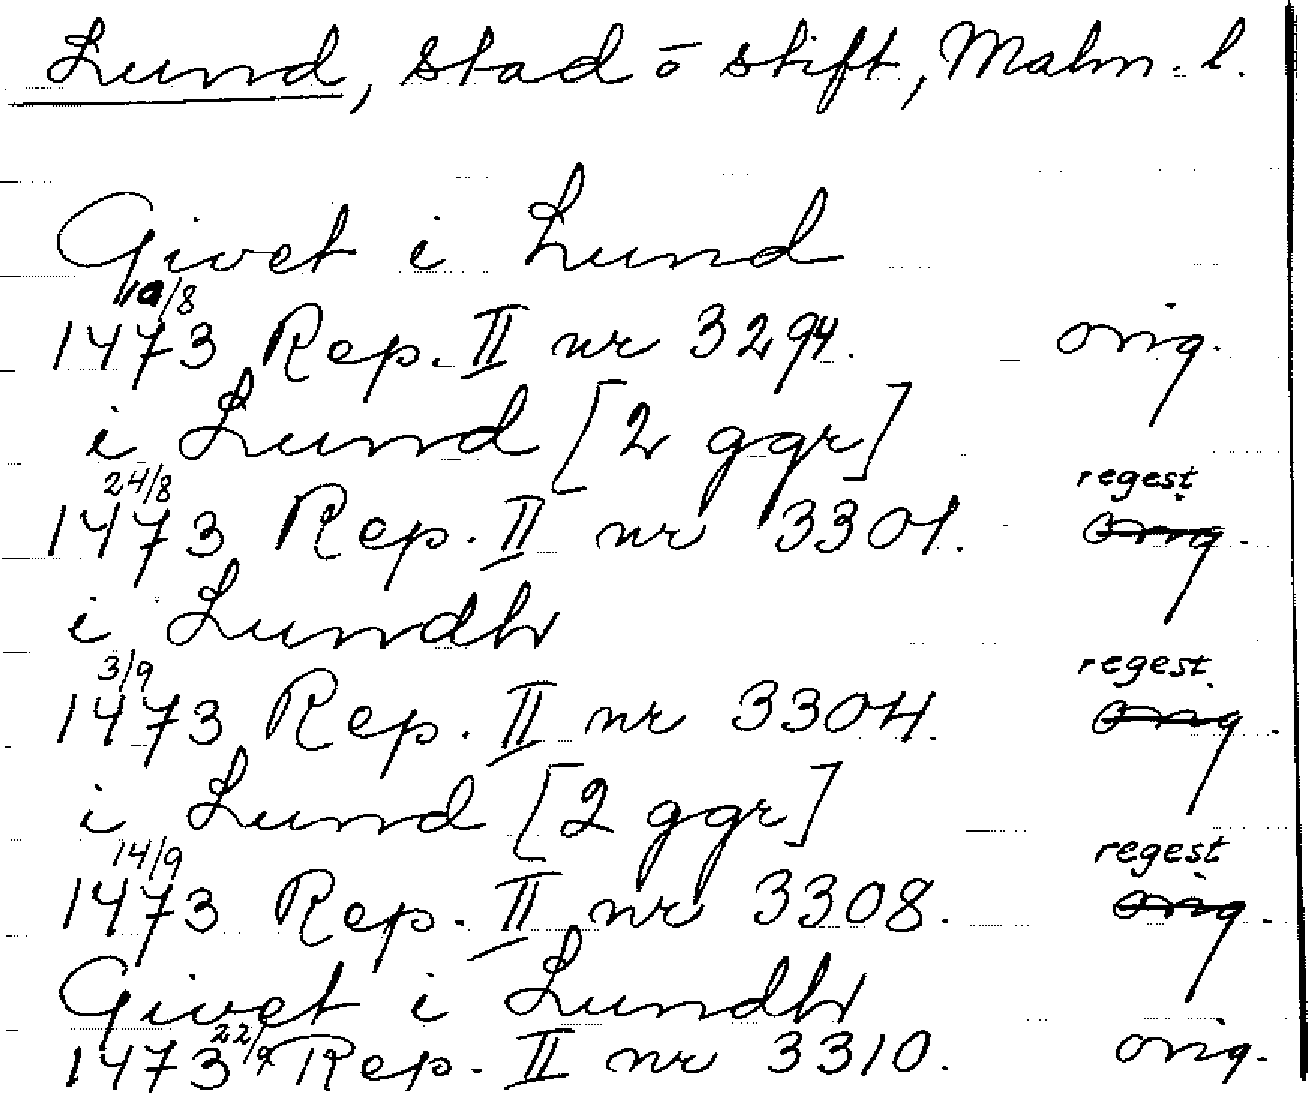 Lund, stad o stift, Malm. l.
Givet i Lund
10/8
1473 Rep. II nr 3294. orig.
i Lund [2 ggr]
24/8 regest
1473 Rep. II nr 3301. orig.
i Lundh
3/9 regest
1473 Rep. II nr 3304. orig.
i Lund [2 ggr]
14/9 regest
1473 Rep. II nr 3308. orig.
Givet i Lundh
22/9
1473 Rep. II nr 3310. orig.